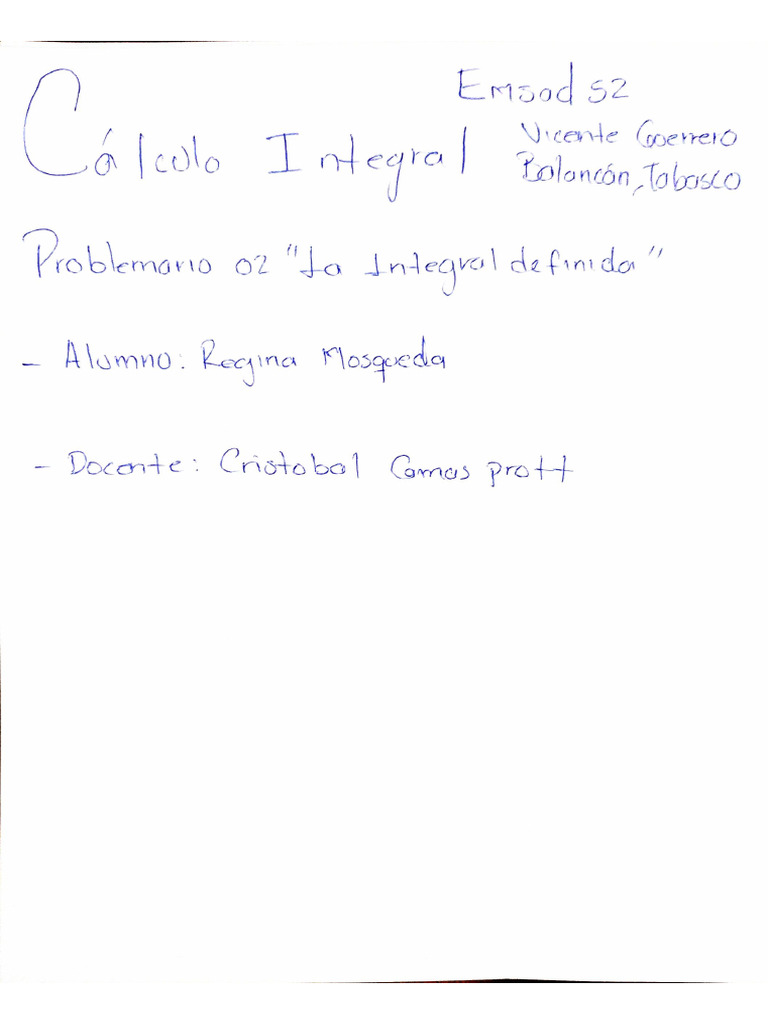 Emsad 52
Cálculo Integral
Vicente Guerrero
Balancán, Tabasco
Problemario 02 "La Integral definida"
- Alumno: Regina Mosqueda
- Docente: Cristobal Camas prott